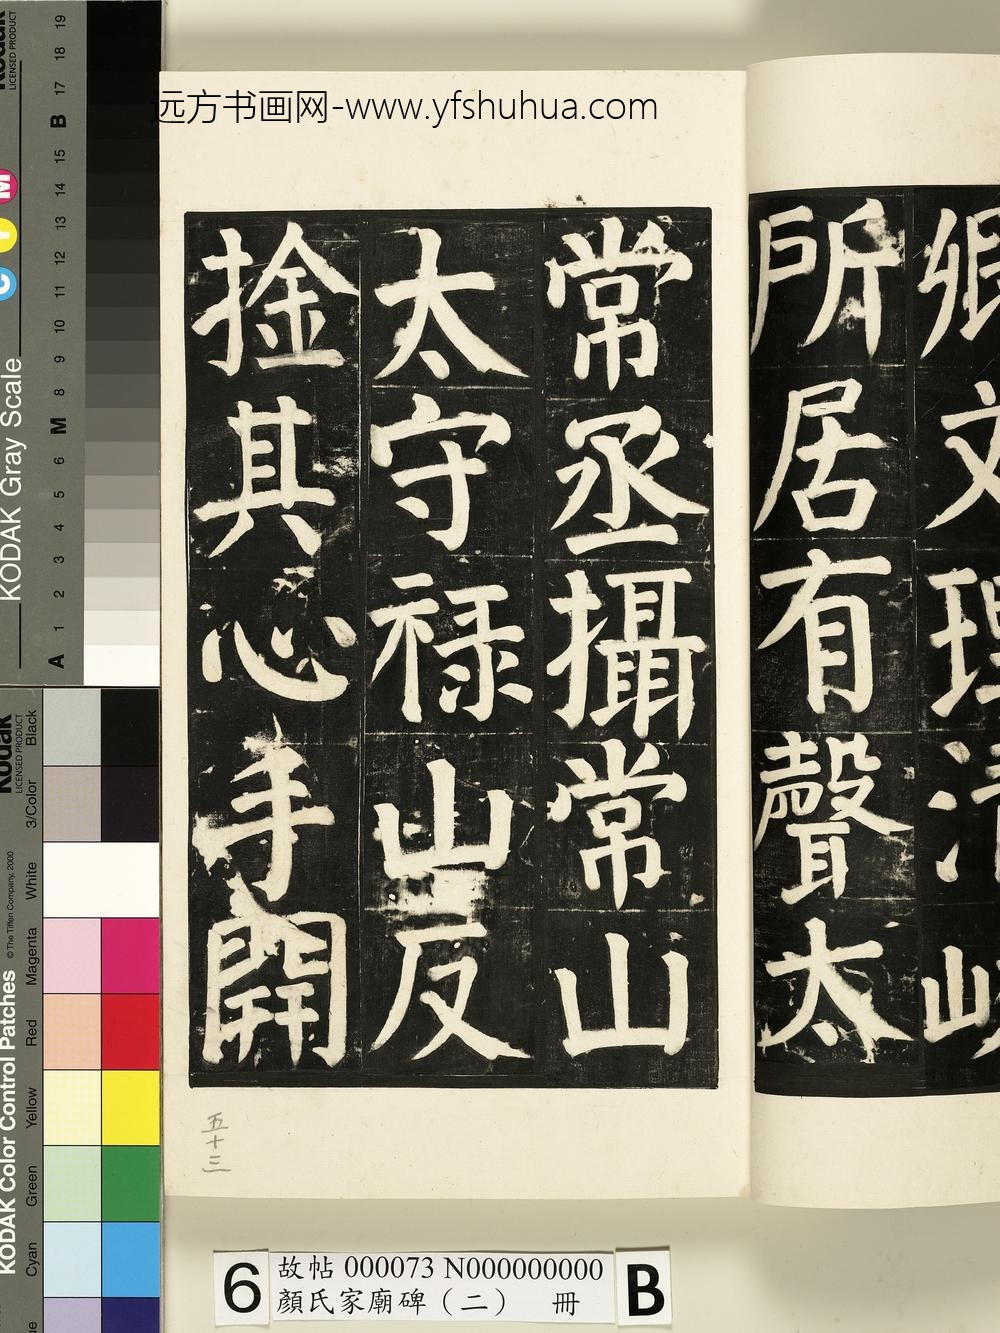 远方书画网-www.yfshuhua.com
鄉文理清峻
所居有聲太
常丞攝常山
太守禄山反
捦其心手開
五十三
6
故帖 000073 N000000000
顏氏家廟碑（二） 冊
B
KODAK Gray Scale
Kodak
LICENSED PRODUCT
C Y M
A 1 2 3 4 5 6 M 8 9 10 11 12 13 14 15 B 17 18 19
KODAK Color Control Patches
© The Tiffen Company, 2000
Kodak
LICENSED PRODUCT
Cyan Green Yellow Red Magenta White 3/Color Black